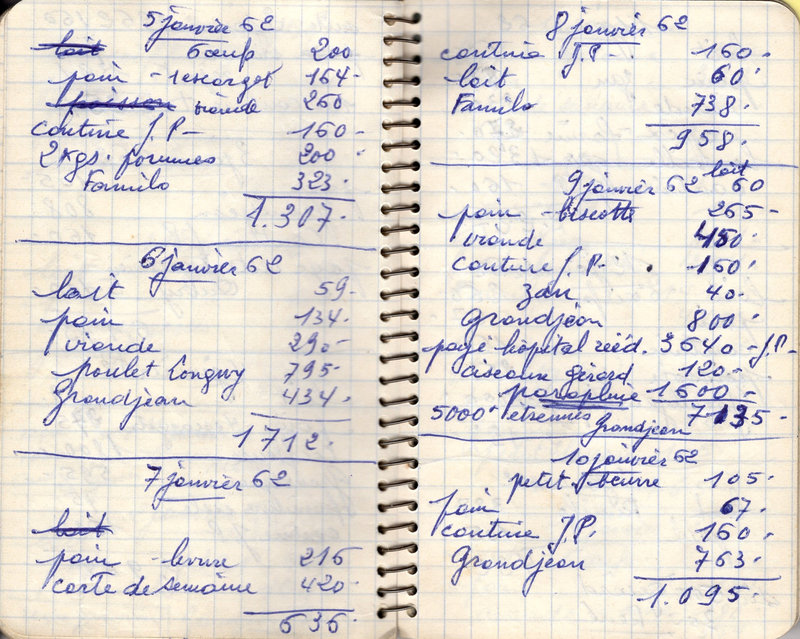 5 janvier 62
lait 6 œufs 200
pain - 1 escargot 164-
poisson viande 260
cantine J.P- 160-
2 kgs. pommes 200
Familo 323.
1.307.
6 janvier 62
lait 59-
pain 134.
viande 290-
poulet Longwy 795-
Grandjean 434.
1712.
7 janvier 62
lait
pain - levure 216
carte de semaine 420.
636.
8 janvier 62
cantine J.P-. 160-
lait 60.
Familo 738.
958.
lait
9 janvier 62 60
pain - biscotte 265-
viande 450.
cantine J.P- 160.
zan 40.
Grandjean 800.
payé hôpital rééd. 3640 - J.P-
ciseaux gérard 120-
parapluie 1600-
5000+ étrennes 7135-
Grandjean
10 janvier 62
petit-beurre 105.
pain 67.
cantine J.P. 160.
Grandjean 763.
1.095.